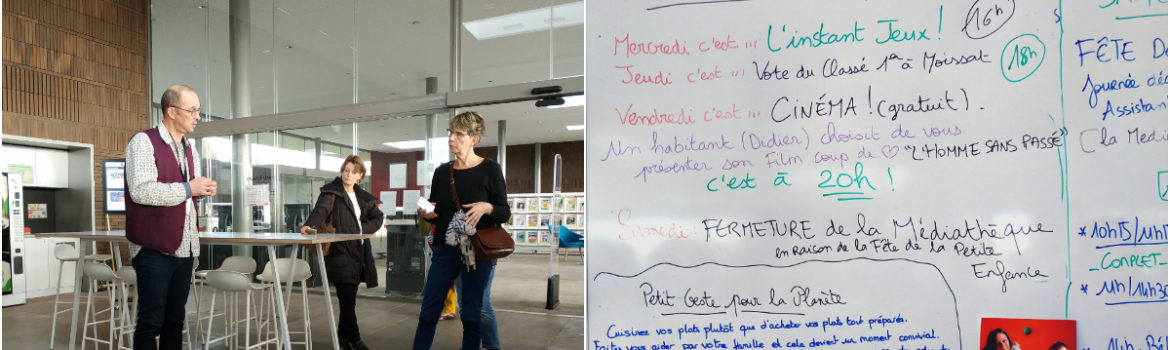 16h
Mercredi c'est ... L'instant Jeux !
Jeudi c'est ... Vote du Classé 1er à Moissat
18h
Vendredi c'est ... CINÉMA ! (gratuit).
Un habitant (Didier) choisit de vous
présenter son Film coup de ♡ "L'HOMME SANS PASSÉ"
c'est à 20h !
Samedi : FERMETURE de la Médiathèque
en raison de la Fête de la Petite
Enfance
Petit Geste pour la Planète
Cuisinez vos plats plutôt que d'acheter vos plats tout préparés.
Faites vous aider par votre famille et cela devient un moment convivial.
FÊTE D
Journée dé
Assistan
(la Médi
* 10h15/11h
_COMPLET_
* 11h/11h30